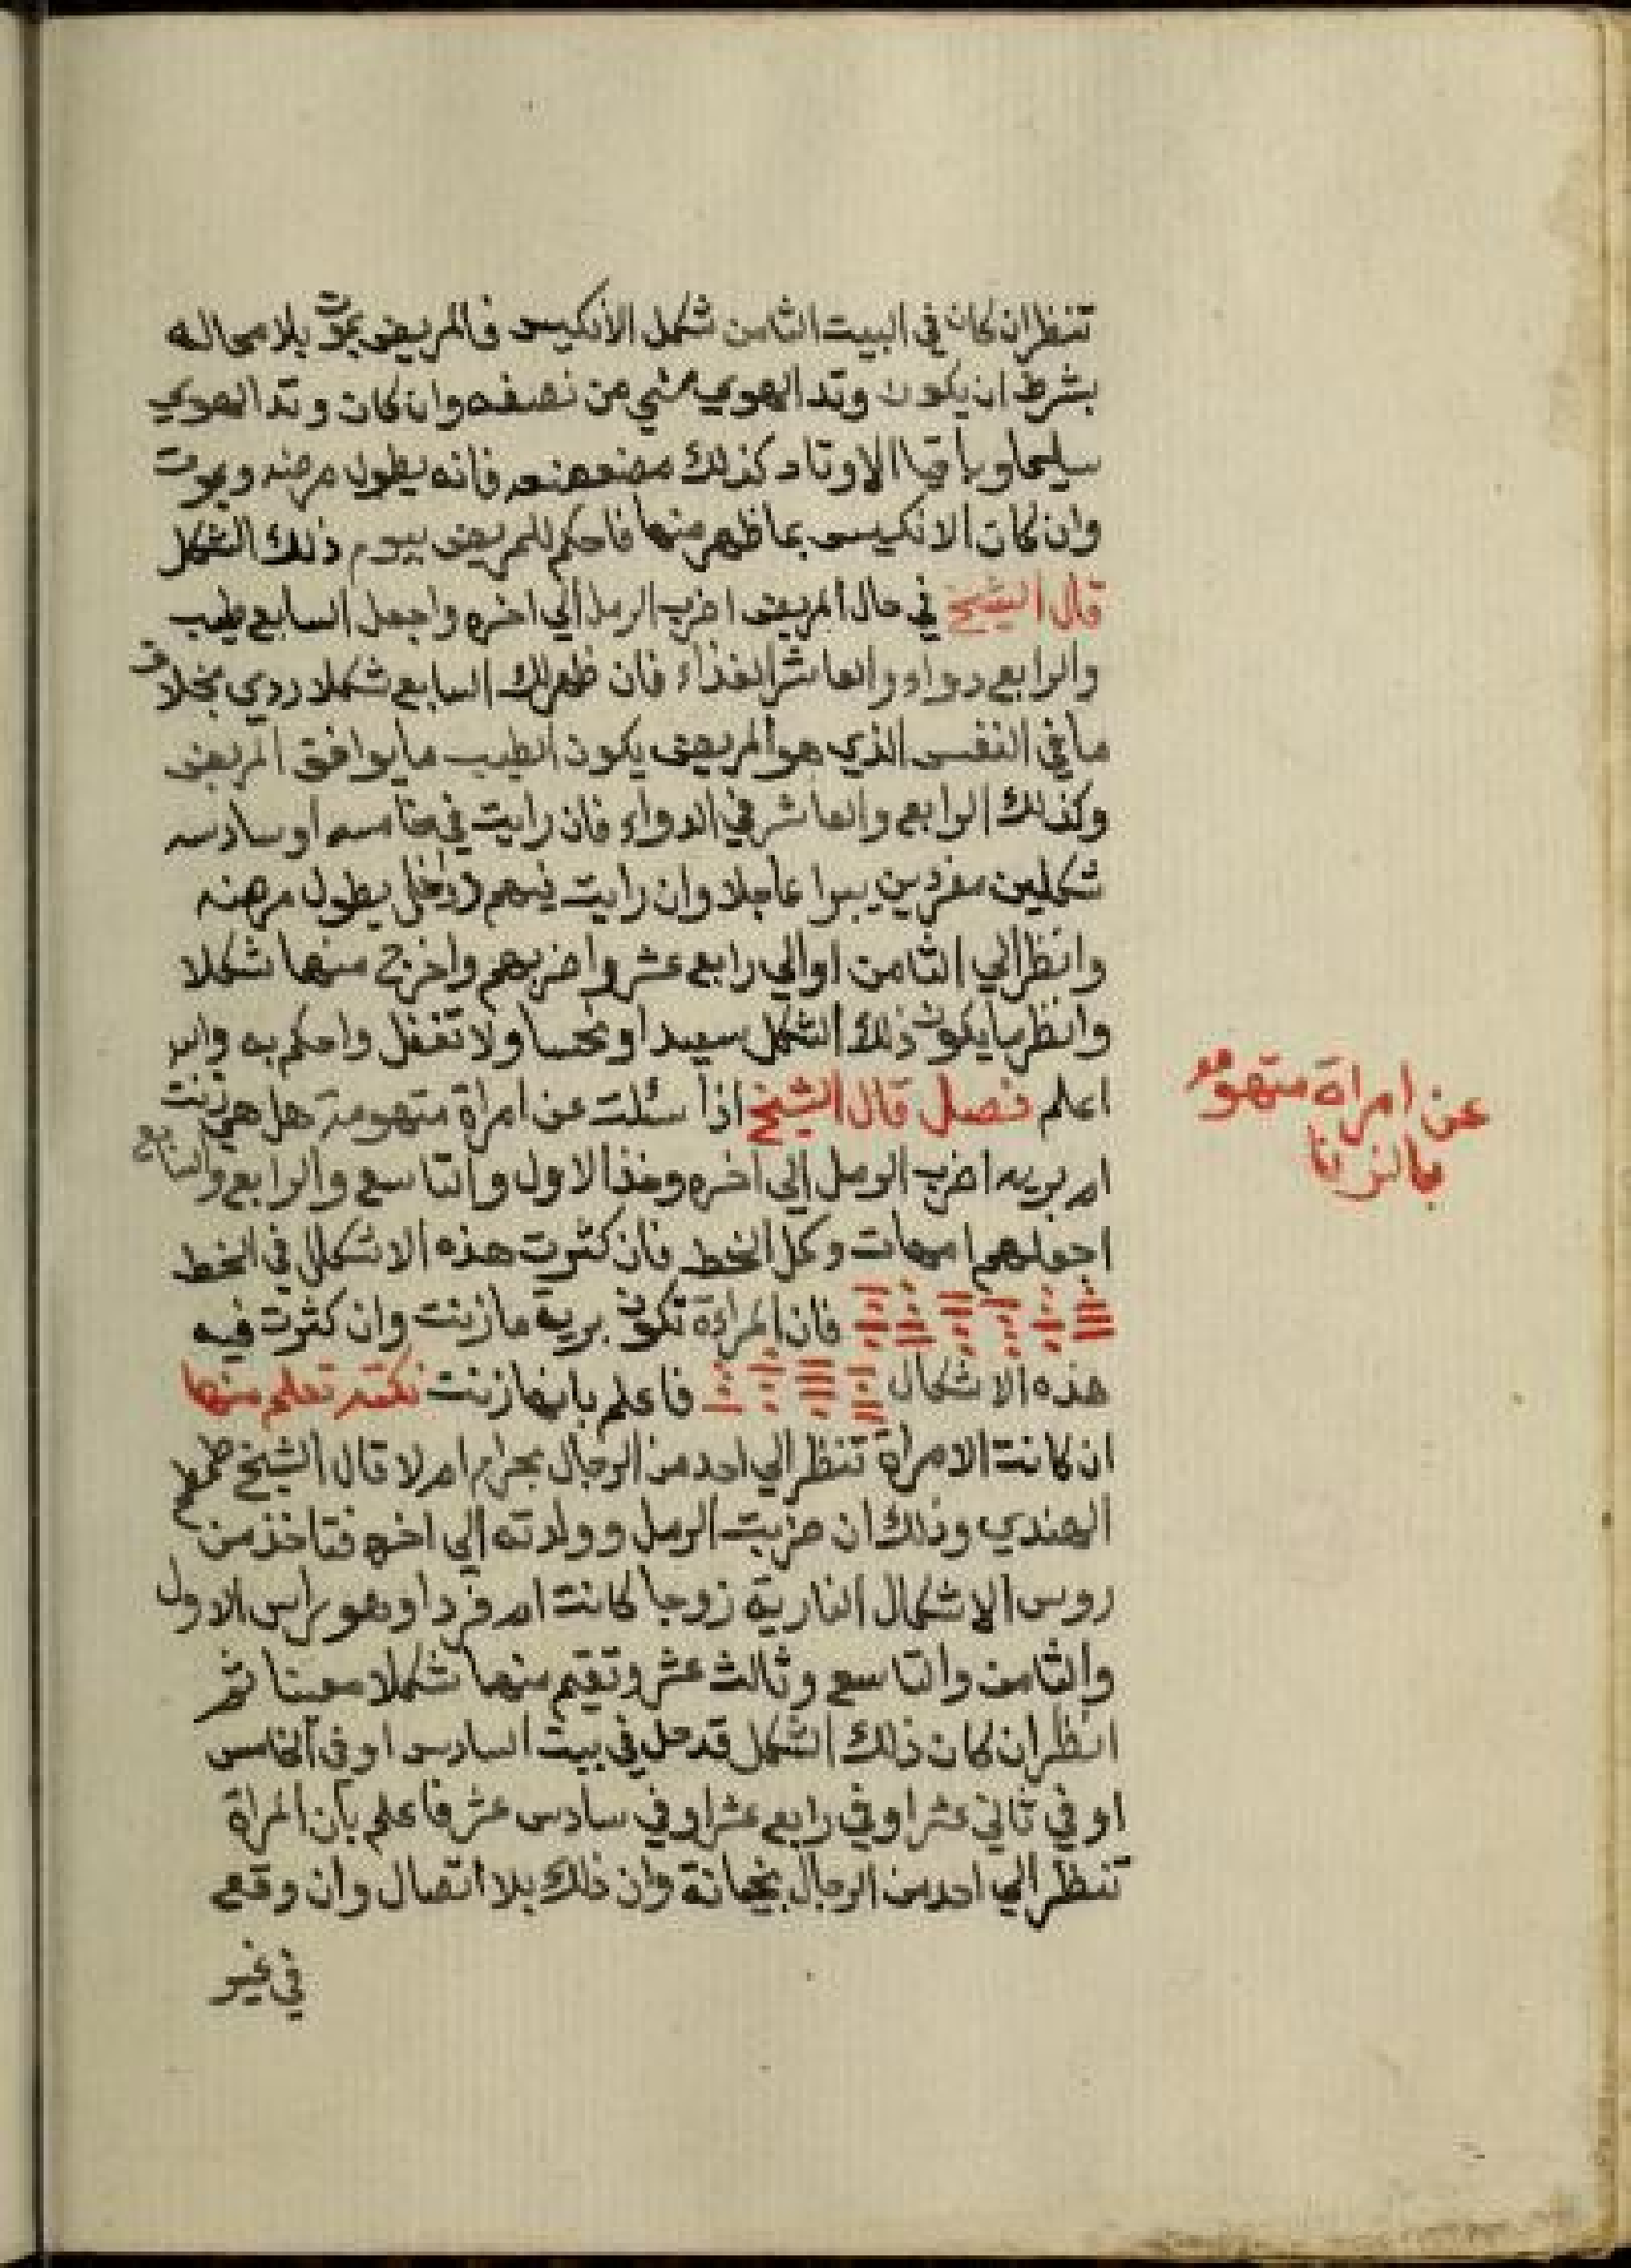 تنظر ان كان في البيت الثامن شكل الانكيس فالمريض يموت بلا محاله
بشرط ان يكون وتد الهوي منبي من نصفه وان كان وتد الهوي
سليما وباقيا الاوتاد كذلك مضعضعه فانه يطول مرضه ويموت
وان كان الانكيس بما ظهر منها فاحكم للمريض بيوم ذلك الشكل
قال الشيخ في حال المريض اضرب الرمل الي اخره واجعل السابع طيب
والرابع دواء والعاشر الغذاء فان ظهر لك السابع شكلا ردي بخلاف
ما في النفس الذي هو المريض يكون الطيب ما يوافق المريض
وكذلك الرابع والعاشر في الدواء فان رايت في خامسه او سادسه
شكلين مفردين يبرا عاجلا وان رايت فيهم يطول مرضه
وانظر الي الثامن او الي رابع عشر واضربهم واخرج منها شكلا
وانظر ما يكون ذلك الشكل سعيدا او نحسا ولا تغفل واحكم به والله
اعلم فصل قال الشيخ اذا سئلت عن امراة متهومة هل هي زنت
ام بريه اضرب الرمل الي اخره وخذ الاول والتاسع والرابع والسابع
اجعلهم امهات وكل الخط فان كثرت هذه الاشكال في الخط
فان المراءة تكون برية ما زنت وان كثرت فيه
هذه الاشكال فاعلم بانها زنت نكته تعلم منها
ان كانت الامراة تنظر الي احد من الرجال بحرام ام لا قال الشيخ طمطم
الهندي وذلك ان ضربت الرمل وولدته الي اخره فتاخذ من
روس الاشكال النارية زوجا كانت ام فردا وهو راس الاول
والثامن والتاسع وثالث عشر وتقيم منها شكلا معينا ثم
انظر ان كان ذلك الشكل قد حل في بيت السادس او في الخامس
او في ثاني عشر او في رابع عشر او في سادس عشر فاعلم بان المراة
تنظر الي احد من الرجال بخيانة وان ذلك بلا اتصال وان وقع
في غير
عن امراة متهومه
بالزنا